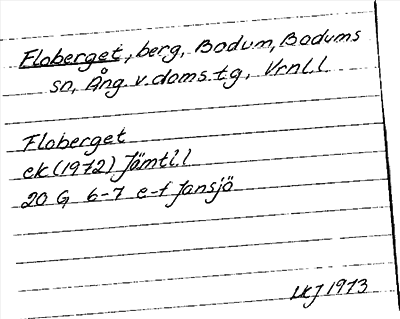 Floberget, berg, Bodum, Bodums
sn, Ång. v. doms. tg, Vrnl. l
Floberget
ek (1972) Jämtl. l
20 G 6-7 e-f Jansjö
LKJ 1973